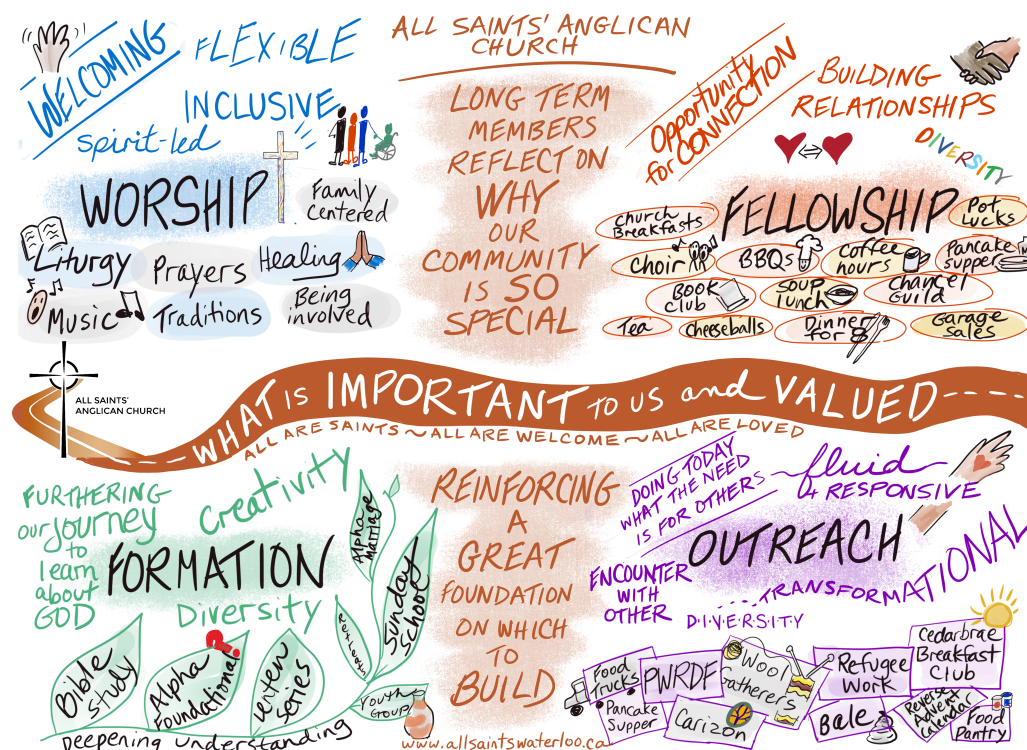 WELCOMING
FLEXIBLE
INCLUSIVE
Spirit-led
WORSHIP
Family
Centered
Liturgy
Prayers
Healing
Music
Traditions
Being
involved
ALL SAINTS' ANGLICAN
CHURCH
LONG TERM
MEMBERS
REFLECT ON
WHY
OUR
COMMUNITY
IS SO
SPECIAL
Opportunity
for CONNECTION
BUILDING
RELATIONSHIPS
DIVERSITY
FELLOWSHIP
Church
Breakfasts
Pot
Lucks
Choir
BBQs
Coffee
hours
Pancake
supper
Book
Club
Soup
lunch
Chancel
Guild
Tea
Cheeseballs
Dinner
for 8
Garage
Sales
ALL SAINTS'
ANGLICAN CHURCH
WHAT IS IMPORTANT TO US and VALUED
ALL ARE SAINTS ~ ALL ARE WELCOME ~ ALL ARE LOVED
FURTHERING
our journey
to
learn
about
GOD
Creativity
FORMATION
Diversity
Alpha
Marriage
Sunday
School
Retreats
Bible
Study
Alpha
Foundational
Lenten
Series
Youth
Group
Deepening understanding
REINFORCING
A
GREAT
FOUNDATION
ON WHICH
TO
BUILD
www.allsaintswaterloo.ca
DOING TODAY
WHAT THE NEED
IS FOR OTHERS
fluid
+ RESPONSIVE
OUTREACH
ENCOUNTER
WITH
OTHER
TRANSFORMATIONAL
D.I.V.E.R.S.I.T.Y
Food
Trucks
PWRDF
Wool
Gatherers
Refugee
Work
Cedarbrae
Breakfast
Club
Pancake
Supper
Carizon
Bale
Reverse
Advent
Calendar
Food
Pantry